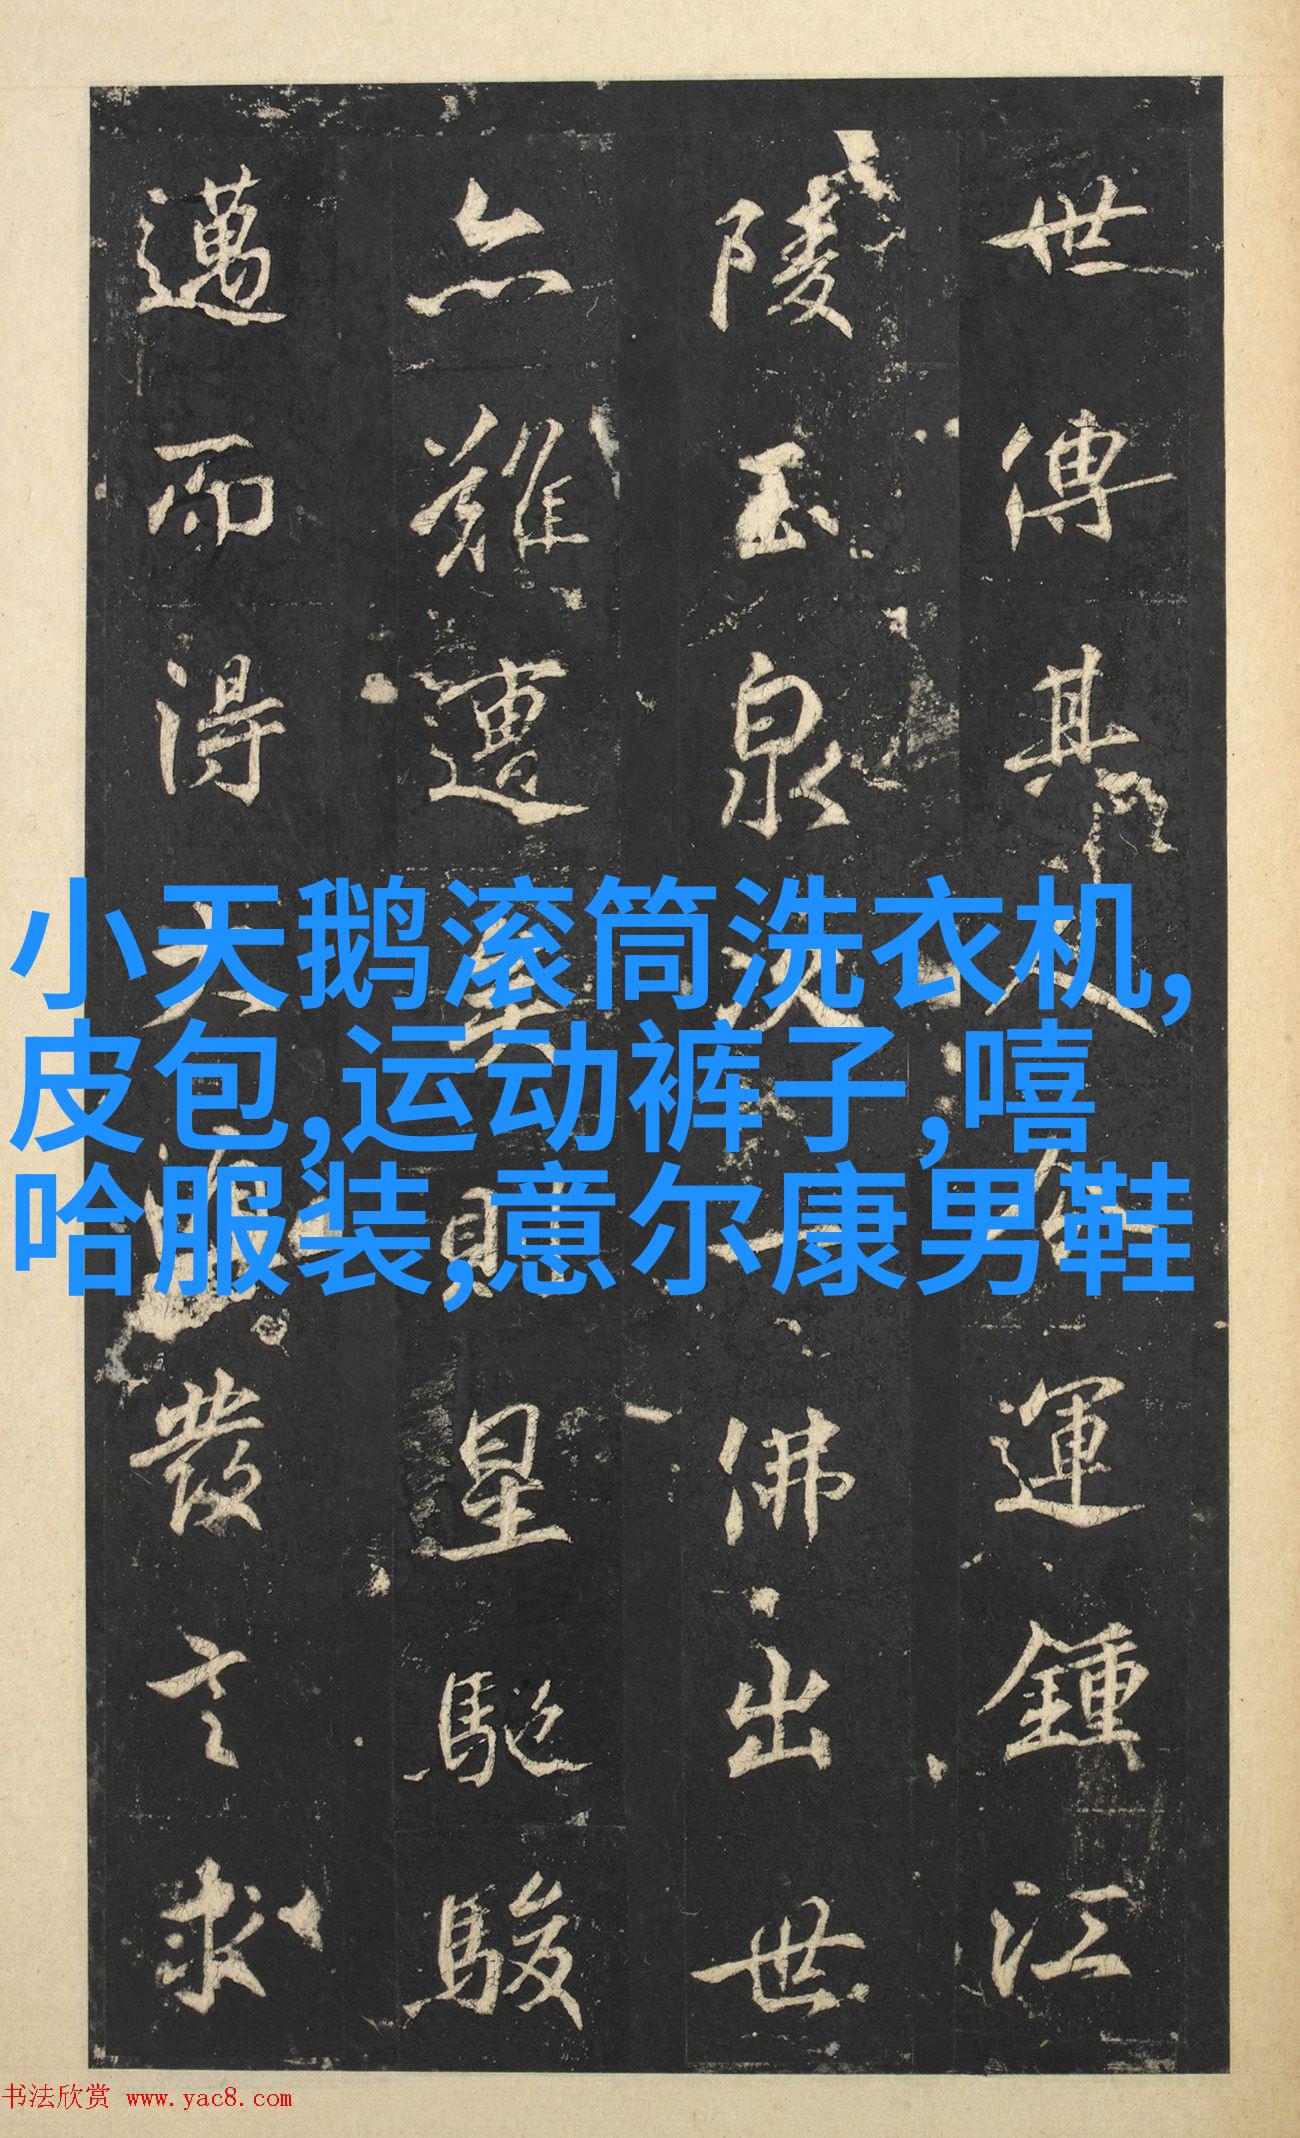 世傳其運鍾江
陵玉泉次一佛出世
亦難遭星馳駿
邁而得發言求
小天鹅滚筒洗衣机,
皮包,运动裤子,嘻
哈服装,意尔康男鞋
书法欣赏 www.yac8.com